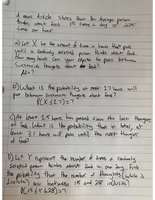 A news article states that the average person
thinks about food 15 times a day or .625
times an hour.
a) Let X be the amount of time in hours that pass
until a randomly selected person thinks about food.
How many hours can you expect to pass between
successive thoughts about food?
μ=?
b) What is the probability at most 2.7 hours will
pass between successive thoughts about food?
P(X≤2.7)=?
c) At least 0.5 hours has passed since the last thought
of food. What is the probability that in total, at
least 3.1 hours will pass until the next thought
of food?
d) Let Y represent the number of times a randomly
selected person thinks about food in one day. Find
the probability that the number of thoughts
between 15 and 28 inclusive?
P(15≤Y≤28)=?